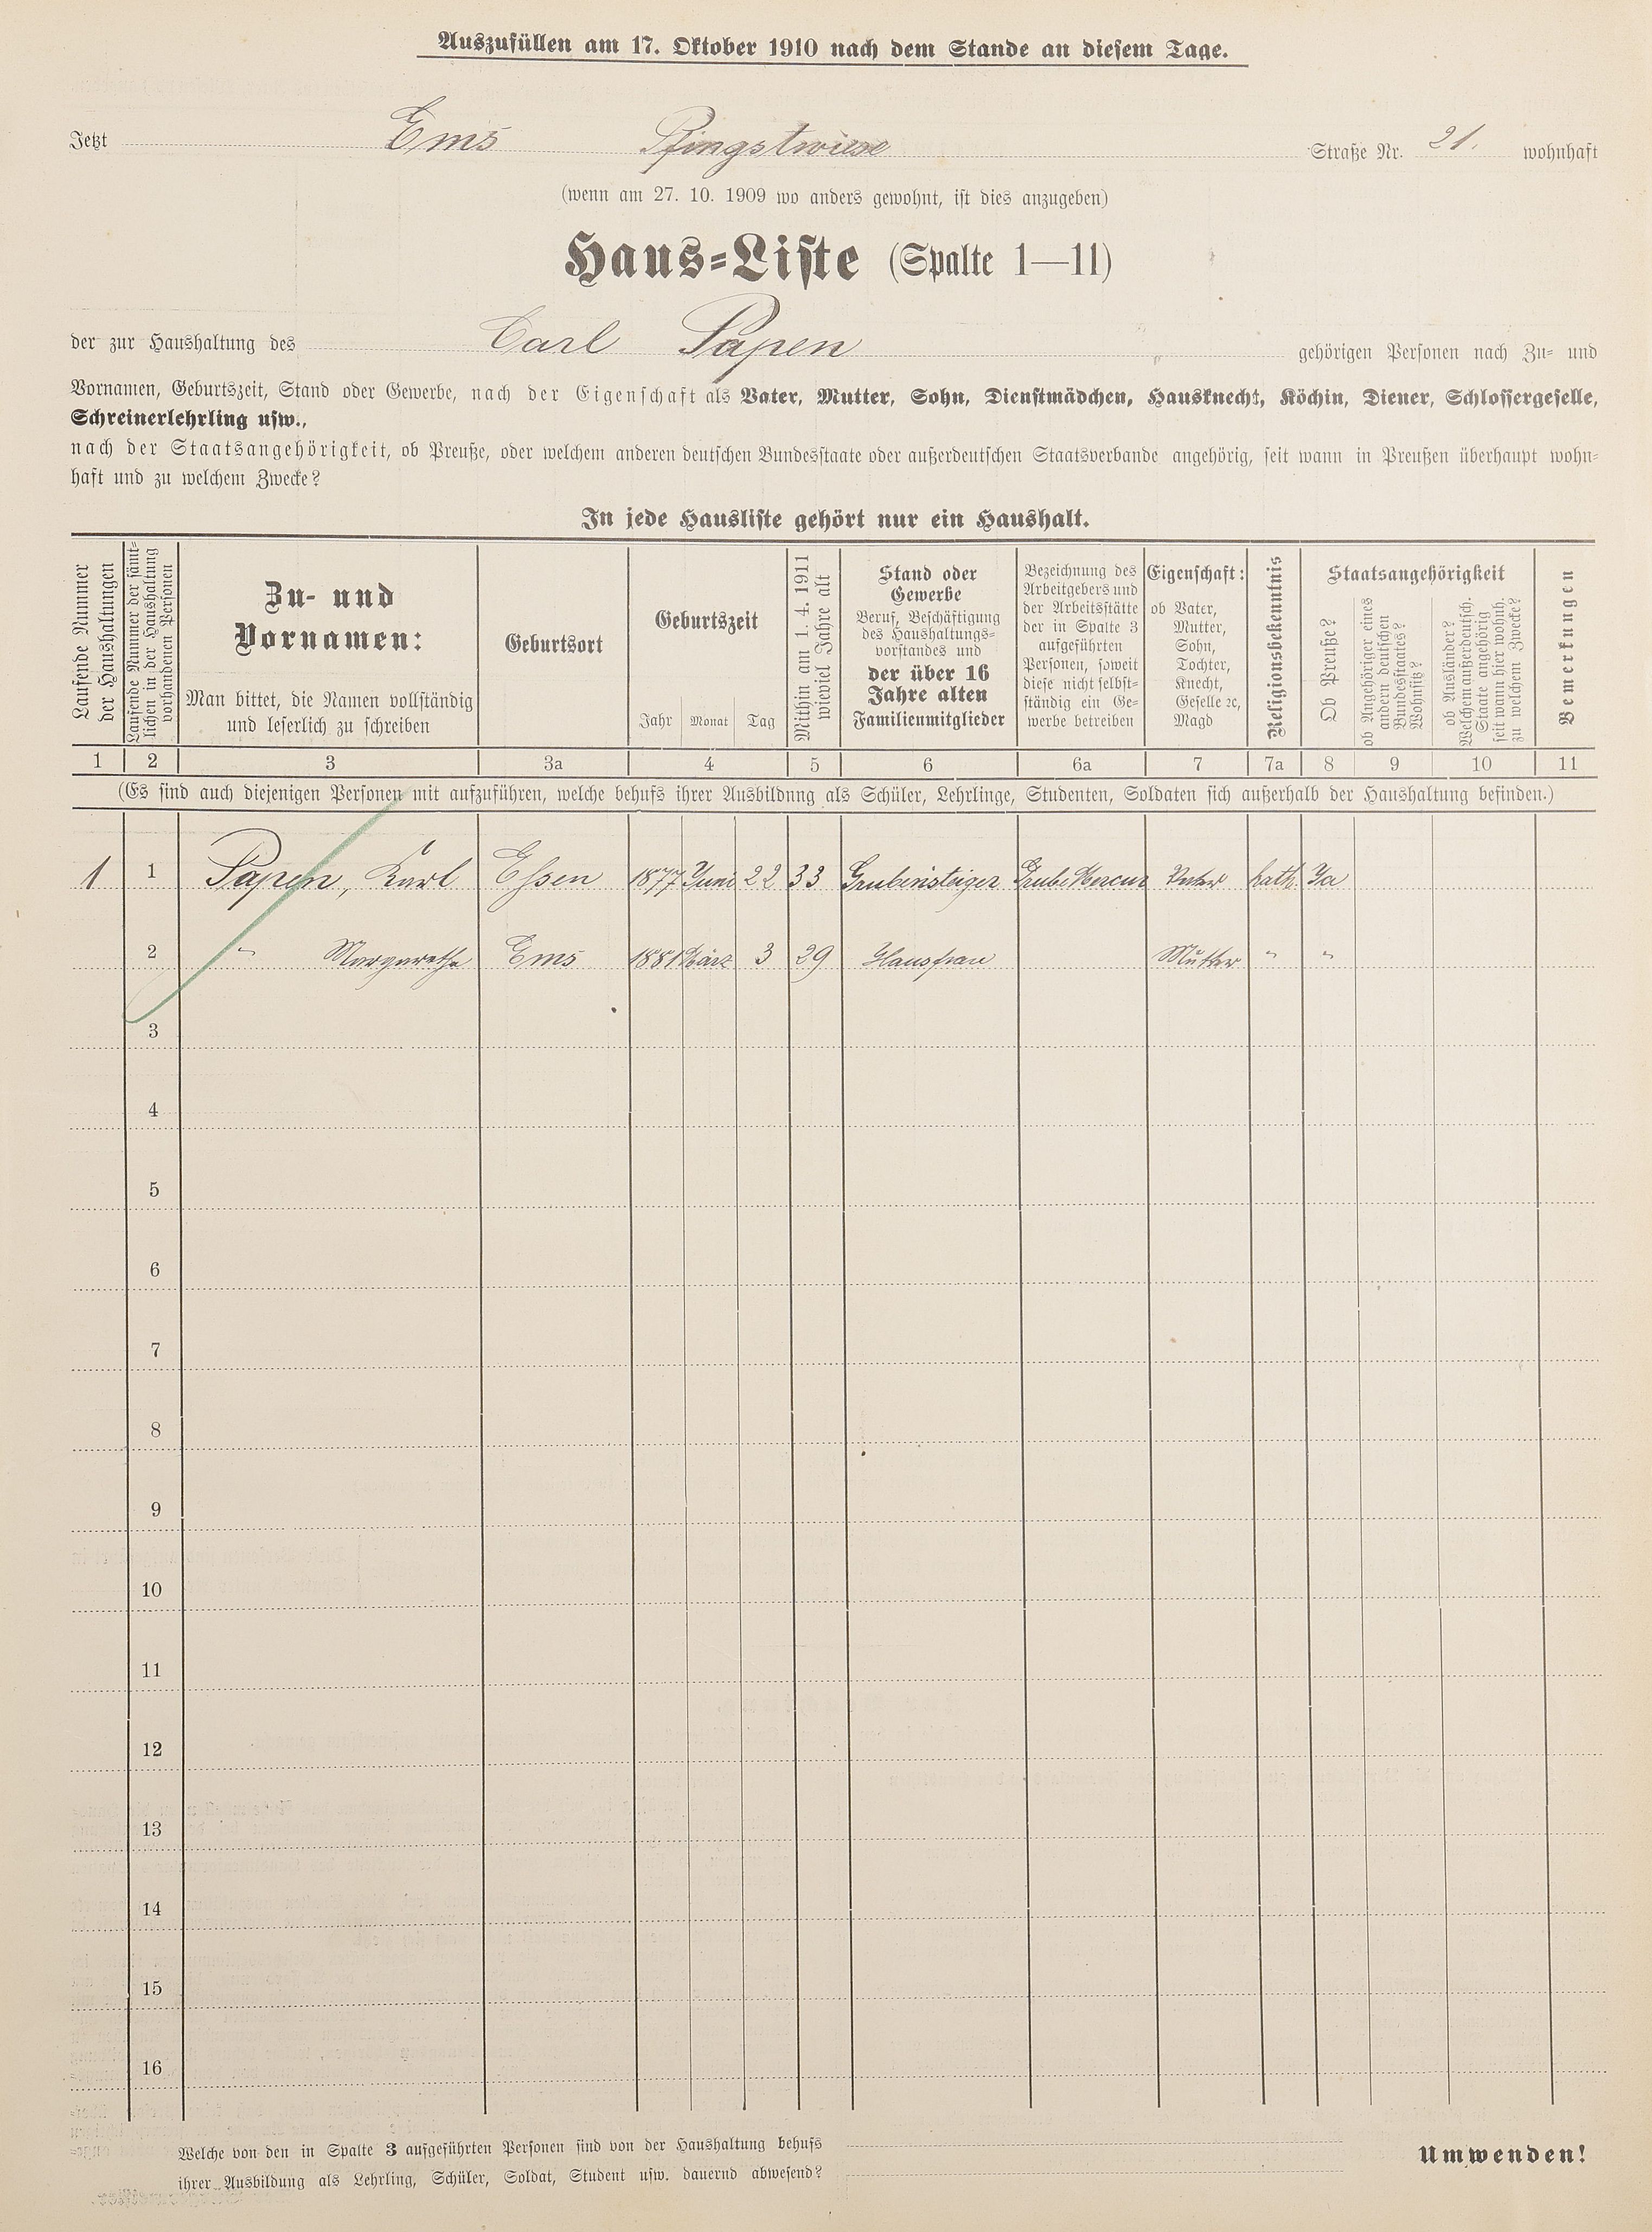 Auszufüllen am 17. Oktober 1910 nach dem Stande an diesem Tage.
Jetzt Ems Pfingstwiese Straße Nr. 21. wohnhaft
(wenn am 27. 10. 1909 wo anders gewohnt, ist dies anzugeben)
Haus-Liste (Spalte 1—11)
der zur Haushaltung des Carl Papen gehörigen Personen nach Zu- und
Vornamen, Geburtszeit, Stand oder Gewerbe, nach der Eigenschaft als Vater, Mutter, Sohn, Dienstmädchen, Hausknecht, Köchin, Diener, Schlossergeselle,
Schreinerlehrling usw.,
nach der Staatsangehörigkeit, ob Preuße, oder welchem anderen deutschen Bundesstaate oder außerdeutschen Staatsverbande angehörig, seit wann in Preußen überhaupt wohn-
haft und zu welchem Zwecke?
In jede Hausliste gehört nur ein Haushalt.
Laufende Nummer
der Haushaltungen
Laufende Nummer der sämt-
lichen in der Haushaltung
vorhandenen Personen
Zu- und
Vornamen:
Man bittet, die Namen vollständig
und leserlich zu schreiben
Geburtsort
Geburtszeit
Jahr Monat Tag
Mithin am 1. 4. 1911
wieviel Jahre alt
Stand oder
Gewerbe
Beruf, Beschäftigung
des Haushaltungs-
vorstandes und
der über 16
Jahre alten
Familienmitglieder
Bezeichnung des
Arbeitgebers und
der Arbeitsstätte
der in Spalte 3
aufgeführten
Personen, soweit
diese nicht selbst-
ständig ein Ge-
werbe betreiben
Eigenschaft:
ob Vater,
Mutter,
Sohn,
Tochter,
Knecht,
Geselle ꝛc,
Magd
Religionsbekenntnis
Staatsangehörigkeit
Ob Preuße?
ob Angehöriger eines
andern deutschen
Bundesstaates?
Wohnsitz?
ob Ausländer?
Welchem außerdeutsch.
Staate angehörig
seit wann hier wohnh.
zu welchem Zwecke?
Bemerkungen
1 2 3 3a 4 5 6 6a 7 7a 8 9 10 11
(Es sind auch diejenigen Personen mit aufzuführen, welche behufs ihrer Ausbildung als Schüler, Lehrlinge, Studenten, Soldaten sich außerhalb der Haushaltung befinden.)
1 1 Papen, Karl Essen 1877 Juni 22 33 Grubensteiger Grube Mercur Vater kath. Ja
2 " Margaretha Ems 1881 März 3 29 Hausfrau Mutter " "
3
4
5
6
7
8
9
10
11
12
13
14
15
16
Welche von den in Spalte 3 aufgeführten Personen sind von der Haushaltung behufs
ihrer Ausbildung als Lehrling, Schüler, Soldat, Student usw. dauernd abwesend?
Umwenden!